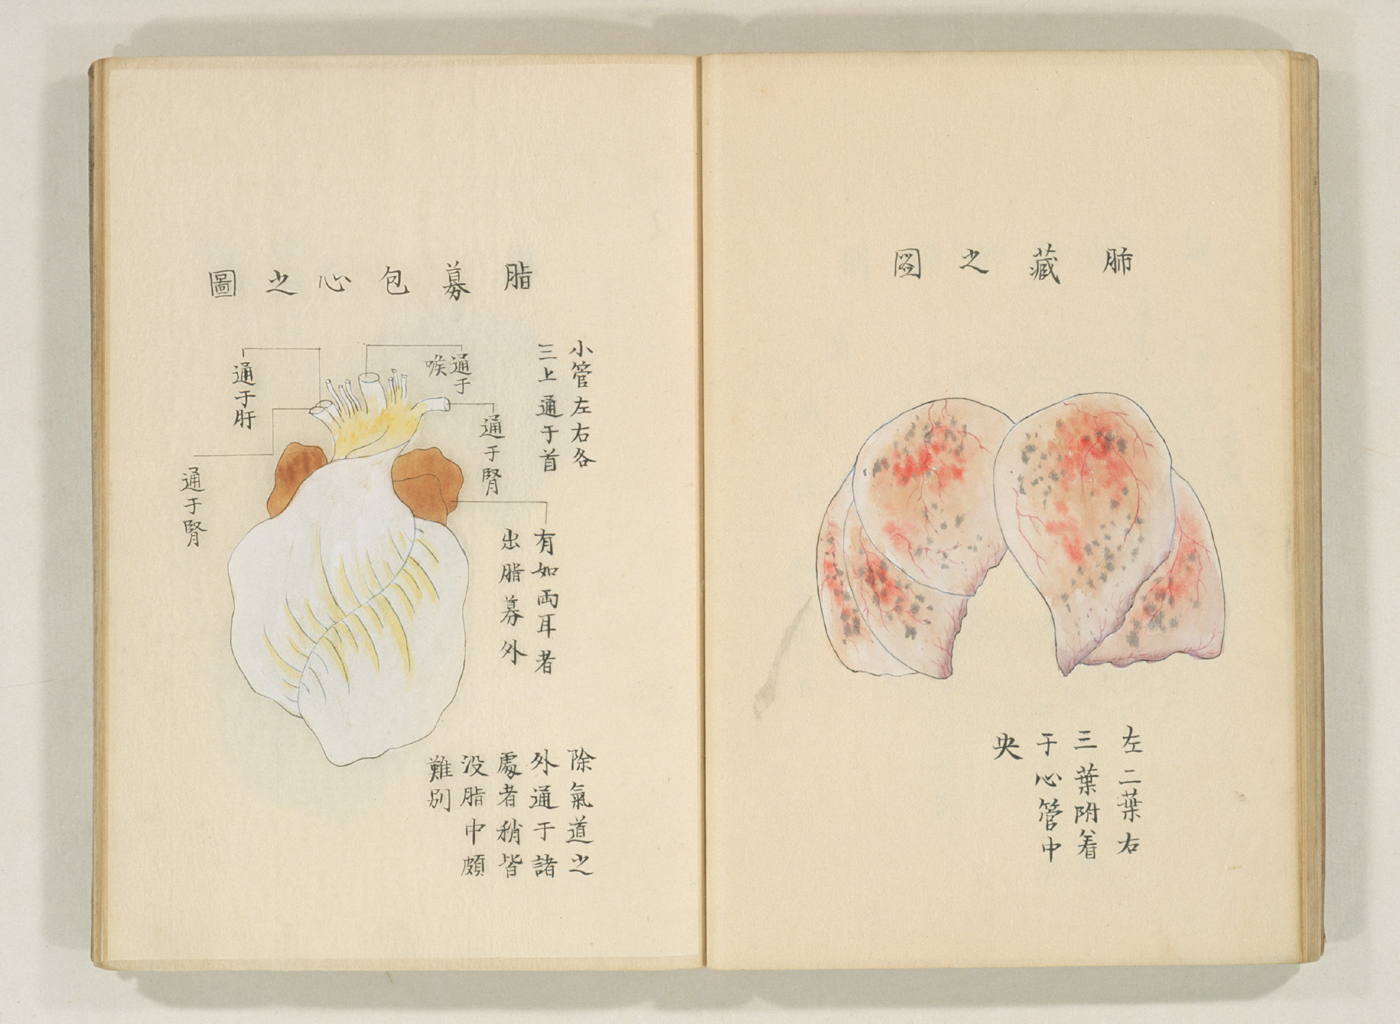 肺藏之圖
左二葉右
三葉附着
于心管中
央
脂募包心之圖
小管左右各
三上通于首
通于
喉
通于腎
通于肝
通于腎
有如両耳者
出脂募外
除氣道之
外通于諸
處者稍皆
没脂中頗
難別